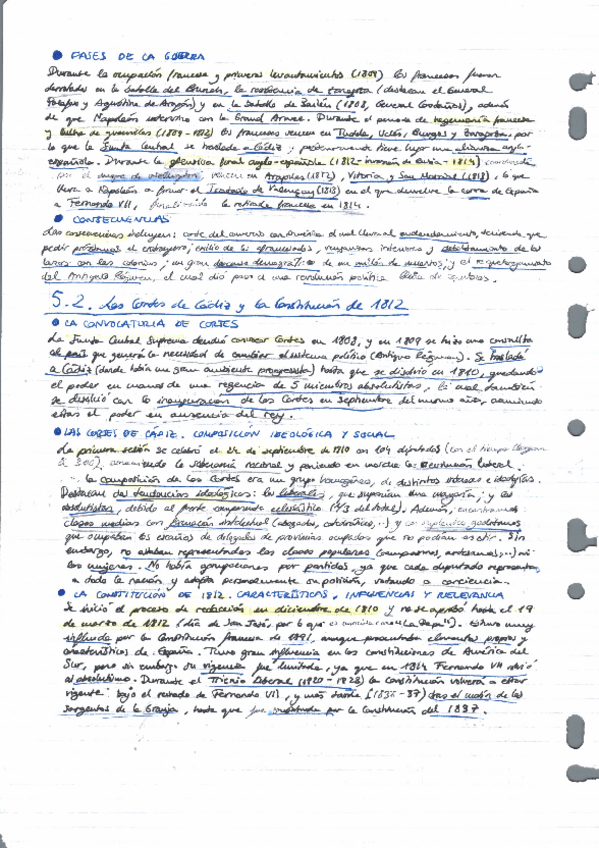 ● FASES DE LA GUERRA
Durante la ocupación francesa y primeros levantamientos (1808) los franceses fueron
derrotados en la batalla del Bruch, la resistencia de Zaragoza (destacan el General
Palafox y Agustina de Aragón) y en la Batalla de Bailén (1808, General Castaños), además
de que Napoleón intervino con la Grand Armee. Durante el periodo de hegemonía francesa
y lucha de guerrillas (1809-1812) los franceses vencen en Tudela, Uclés, Burgos y Zaragoza, por
lo que la Junta Central se traslada a Cádiz; posteriormente tiene lugar una alianza anglo-
española. Durante la ofensiva final anglo-española (1812-invasión de Rusia-1814) comandada
por el duque de Wellington, vencen en Arapiles (1812), Vitoria y San Marcial (1813), lo que
lleva a Napoleón a firmar el Tratado de Valençay (1813) en el que devuelve la corona de España
a Fernando VII, finalizando la retirada francesa en 1814.
● CONSECUENCIAS
Las consecuencias incluyen: corte del comercio con América el cual llevó al endeudamiento, teniendo que
pedir préstamos al extranjero; exilio de los afrancesados, venganzas internas y debilitamiento de los
lazos con las colonias; un gran descenso demográfico de un millón de muertos; y el resquebrajamiento
del Antiguo Régimen, el cual dio paso a una revolución política
5.2. Las Cortes de Cádiz y la Constitución de 1812
● LA CONVOCATORIA DE CORTES
La Junta Central Suprema decidió convocar Cortes en 1808, y en 1809 se hizo una consulta
al país que generó la necesidad de cambiar el sistema político (Antiguo Régimen). Se trasladó
a Cádiz (donde había un gran ambiente progresista) hasta que se disolvió en 1810, quedando
el poder en manos de una regencia de 5 miembros absolutistas, la cual también
se disolvió con la inauguración de las Cortes en septiembre del mismo año, asumiendo
estas el poder en ausencia del rey.
● LAS CORTES DE CÁDIZ. COMPOSICIÓN IDEOLÓGICA Y SOCIAL
La primera sesión se celebró el 24 de septiembre de 1810 con 104 diputados (con el tiempo llegaron
a 300), asumiendo la soberanía nacional y poniendo en marcha la Revolución liberal.
la composición de las Cortes era un grupo homogéneo, de distintas ideas e ideologías.
Destacan dos tendencias ideológicas: los liberales, que suponían una mayoría; y los
absolutistas, debido al fuerte componente eclesiástico (1/3 del total). Además, encontramos
clases medias con formación intelectual (abogados, catedráticos...) y suplentes gaditanos
que ocupaban los escaños de delegados de provincias ocupadas que no podían asistir. Sin
embargo, no estaban representadas las clases populares (campesinos, artesanos...) ni
las mujeres. No había agrupaciones por partidos, ya que cada diputado representaba
a toda la nación y adopta personalmente su posición, votando a conciencia.
● LA CONSTITUCIÓN DE 1812. CARACTERÍSTICAS, INFLUENCIAS Y RELEVANCIA
Se inició el proceso de redacción en diciembre de 1810 y no se aprobó hasta el 19
de marzo de 1812 (día de San José, por lo que es conocida como La Pepa). Estuvo muy
influida por la Constitución francesa de 1791, aunque presentaba elementos propios y
característicos de España. Tuvo gran influencia en las constituciones de América del
Sur, pero sin embargo su vigencia fue limitada, ya que en 1814 Fernando VII volvió
al absolutismo. Durante el Trienio Liberal (1820-1823) la Constitución volverá a estar
vigente bajo el reinado de Fernando VII, y más tarde (1836-37) tras el motín de los
Sargentos de la Granja, hasta que fue sustituida por la Constitución del 1837.